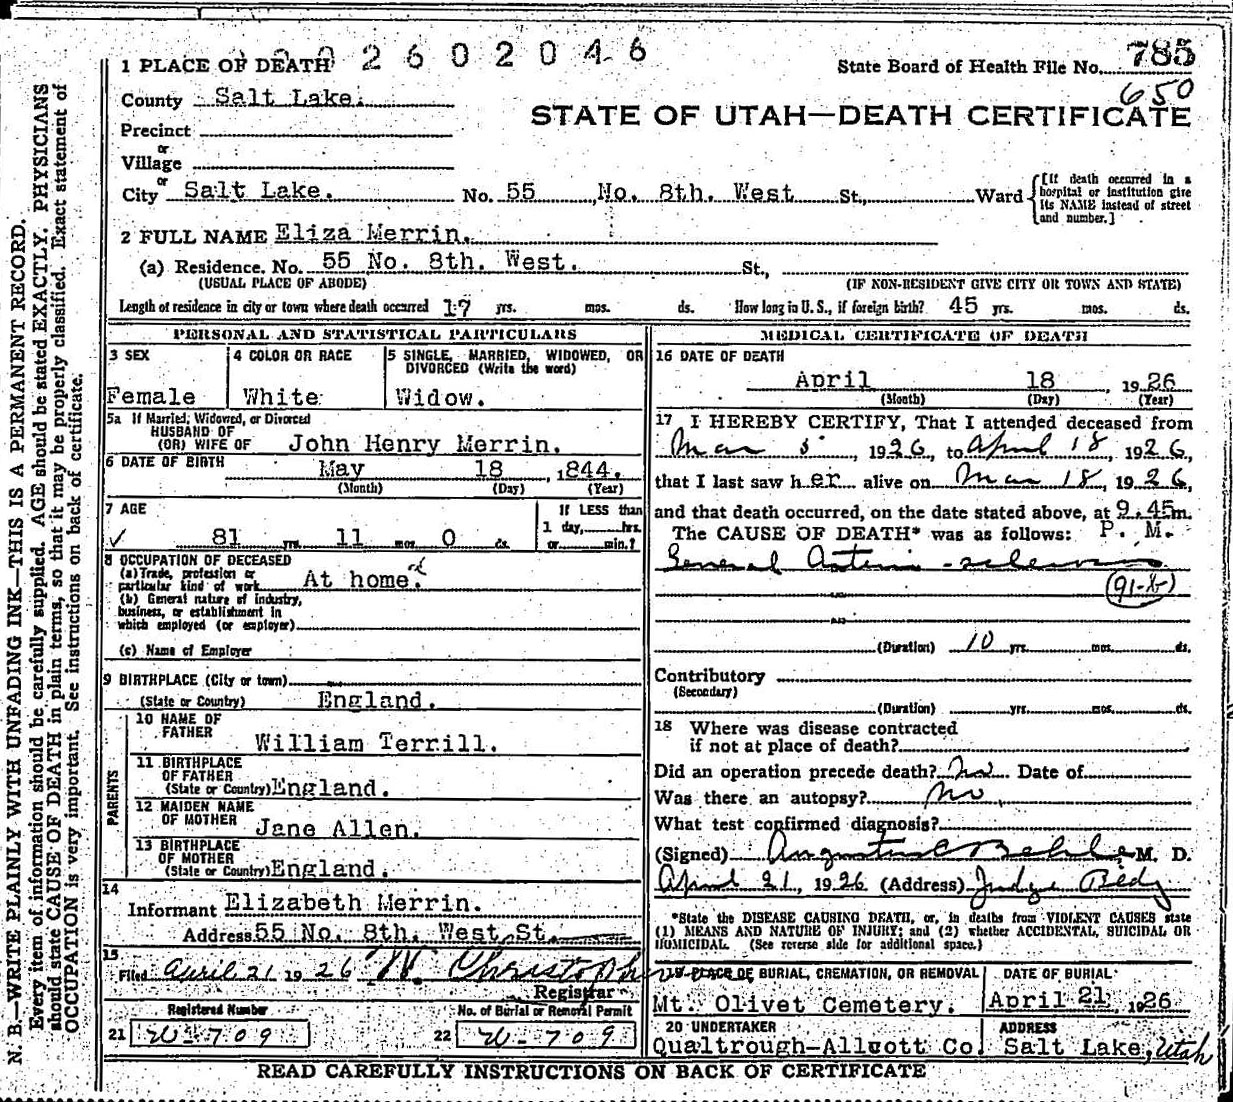 2602046
785
1 PLACE OF DEATH
State Board of Health File No.
650
County Salt Lake.
STATE OF UTAH—DEATH CERTIFICATE
Precinct
or
Village
or
City Salt Lake. No. 55 No. 8th. West St., Ward
[If death occurred in a hospital or institution give its NAME instead of street and number.]
2 FULL NAME Eliza Merrin.
(a) Residence. No. 55 No. 8th. West. St.,
(USUAL PLACE OF ABODE) (IF NON-RESIDENT GIVE CITY OR TOWN AND STATE)
Length of residence in city or town where death occurred 17 yrs. mos. ds. How long in U. S., if foreign birth? 45 yrs. mos. ds.
PERSONAL AND STATISTICAL PARTICULARS
3 SEX
Female
4 COLOR OR RACE
White
5 SINGLE, MARRIED, WIDOWED, OR
DIVORCED (Write the word)
Widow.
5a If Married, Widowed, or Divorced
HUSBAND OF
(OR) WIFE OF John Henry Merrin.
6 DATE OF BIRTH May 18 , 1844.
(Month) (Day) (Year)
7 AGE
81 yrs. 11 mos. 0 ds.
If LESS than
1 day, hrs.
or min.?
8 OCCUPATION OF DECEASED
(a) Trade, profession or
particular kind of work At home.
(b) General nature of industry,
business, or establishment in
which employed (or employer)
(c) Name of Employer
9 BIRTHPLACE (City or town)
(State or Country) England.
PARENTS
10 NAME OF
FATHER
William Terrill.
11 BIRTHPLACE
OF FATHER
(State or Country) England.
12 MAIDEN NAME
OF MOTHER
Jane Allen.
13 BIRTHPLACE
OF MOTHER
(State or Country) England.
14
Informant Elizabeth Merrin.
Address 55 No. 8th. West St.
15
Filed April 21 1926
Registrar
Registered Number
21 709
No. of Burial or Removal Permit
22 709
MEDICAL CERTIFICATE OF DEATH
16 DATE OF DEATH
April 18 , 1926
(Month) (Day) (Year)
17 I HEREBY CERTIFY, That I attended deceased from
Mar 5 , 1926, to April 18 , 1926,
that I last saw her alive on Mar 18 , 1926,
and that death occurred, on the date stated above, at 9.45m.
The CAUSE OF DEATH* was as follows: P. M.
General
(Duration) 10 yrs. mos. ds.
Contributory
(Secondary)
(Duration) yrs. mos. ds.
18 Where was disease contracted
if not at place of death?
Did an operation precede death? No Date of
Was there an autopsy? No.
What test confirmed diagnosis?
(Signed) M. D.
April 21, 1926 (Address) Judge Bldg
*State the DISEASE CAUSING DEATH, or, in deaths from VIOLENT CAUSES state
(1) MEANS AND NATURE OF INJURY; and (2) whether ACCIDENTAL, SUICIDAL OR
HOMICIDAL. (See reverse side for additional space.)
19 PLACE OF BURIAL, CREMATION, OR REMOVAL
Mt. Olivet Cemetery.
DATE OF BURIAL
April 21 , 1926
20 UNDERTAKER
Qualtrough-Allcott Co.
ADDRESS
Salt Lake, Utah
READ CAREFULLY INSTRUCTIONS ON BACK OF CERTIFICATE
N. B.—WRITE PLAINLY WITH UNFADING INK—THIS IS A PERMANENT RECORD.
Every item of information should be carefully supplied. AGE should be stated EXACTLY. PHYSICIANS
should state CAUSE OF DEATH in plain terms, so that it may be properly classified. Exact statement of
OCCUPATION is very important. See instructions on back of certificate.